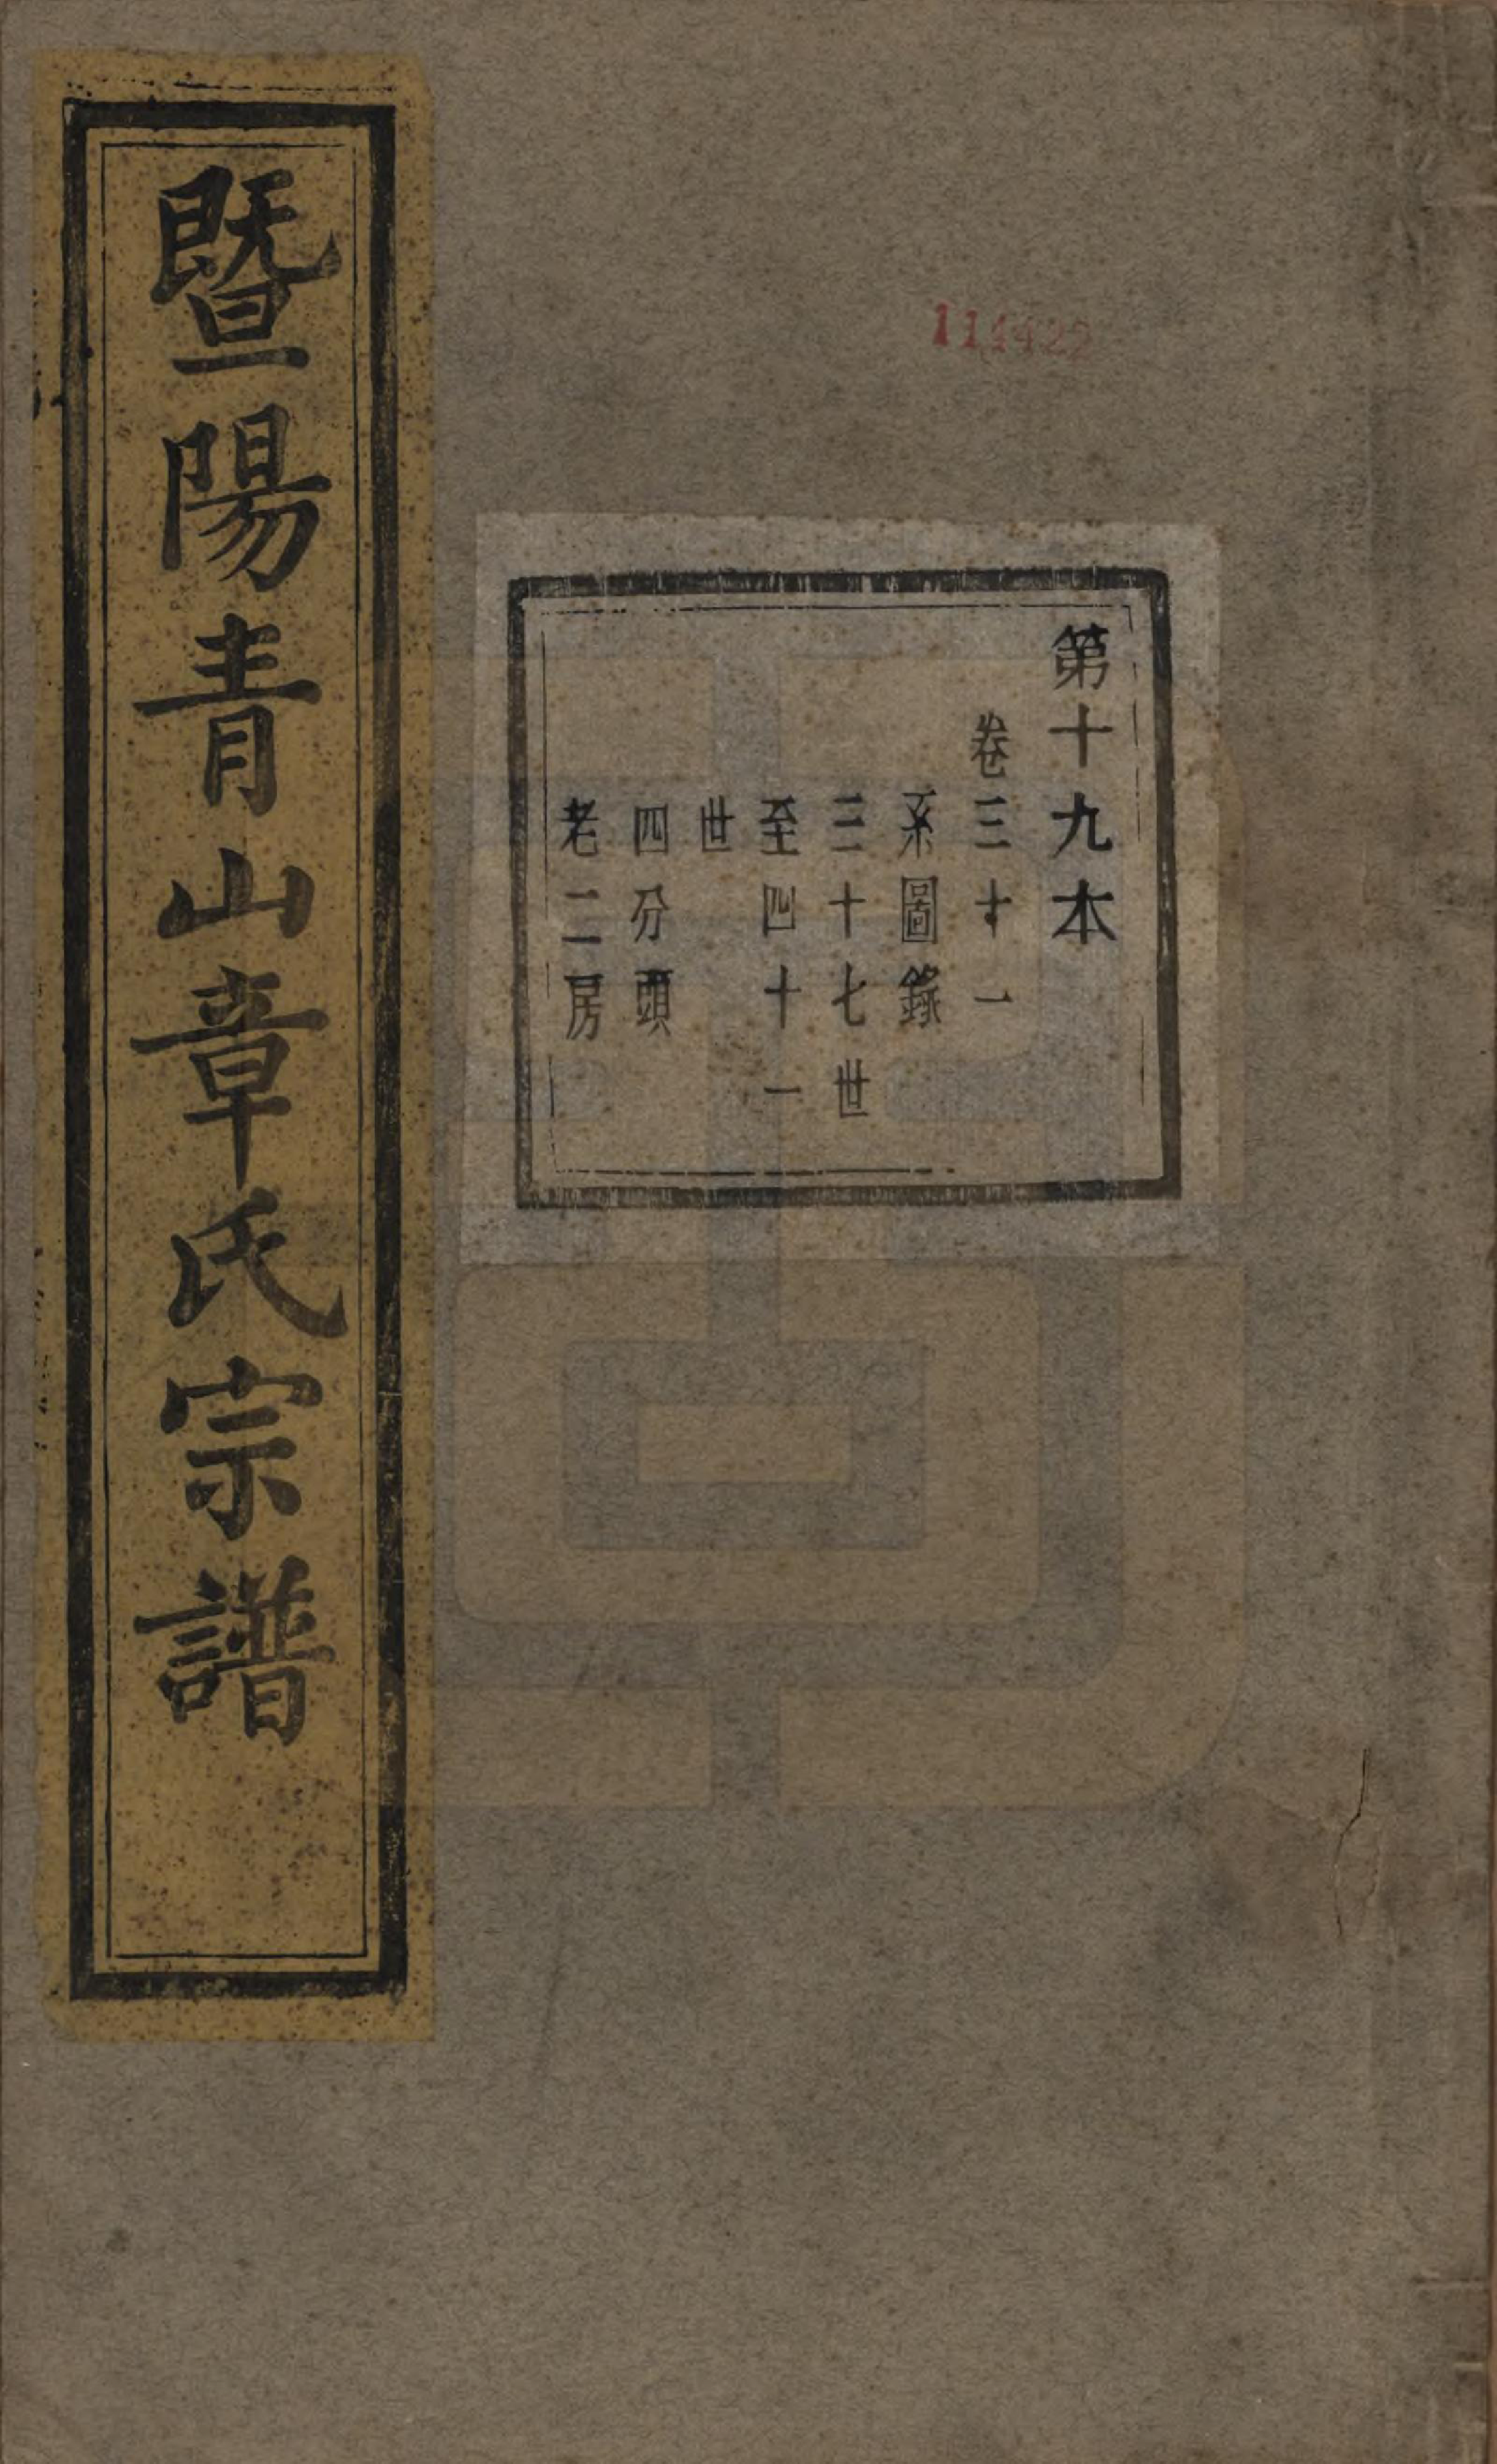 第十九本
卷三十一
系圖錄
三十七世
至四十一
世
四分頭
老二房
暨陽青山章氏宗譜
114422